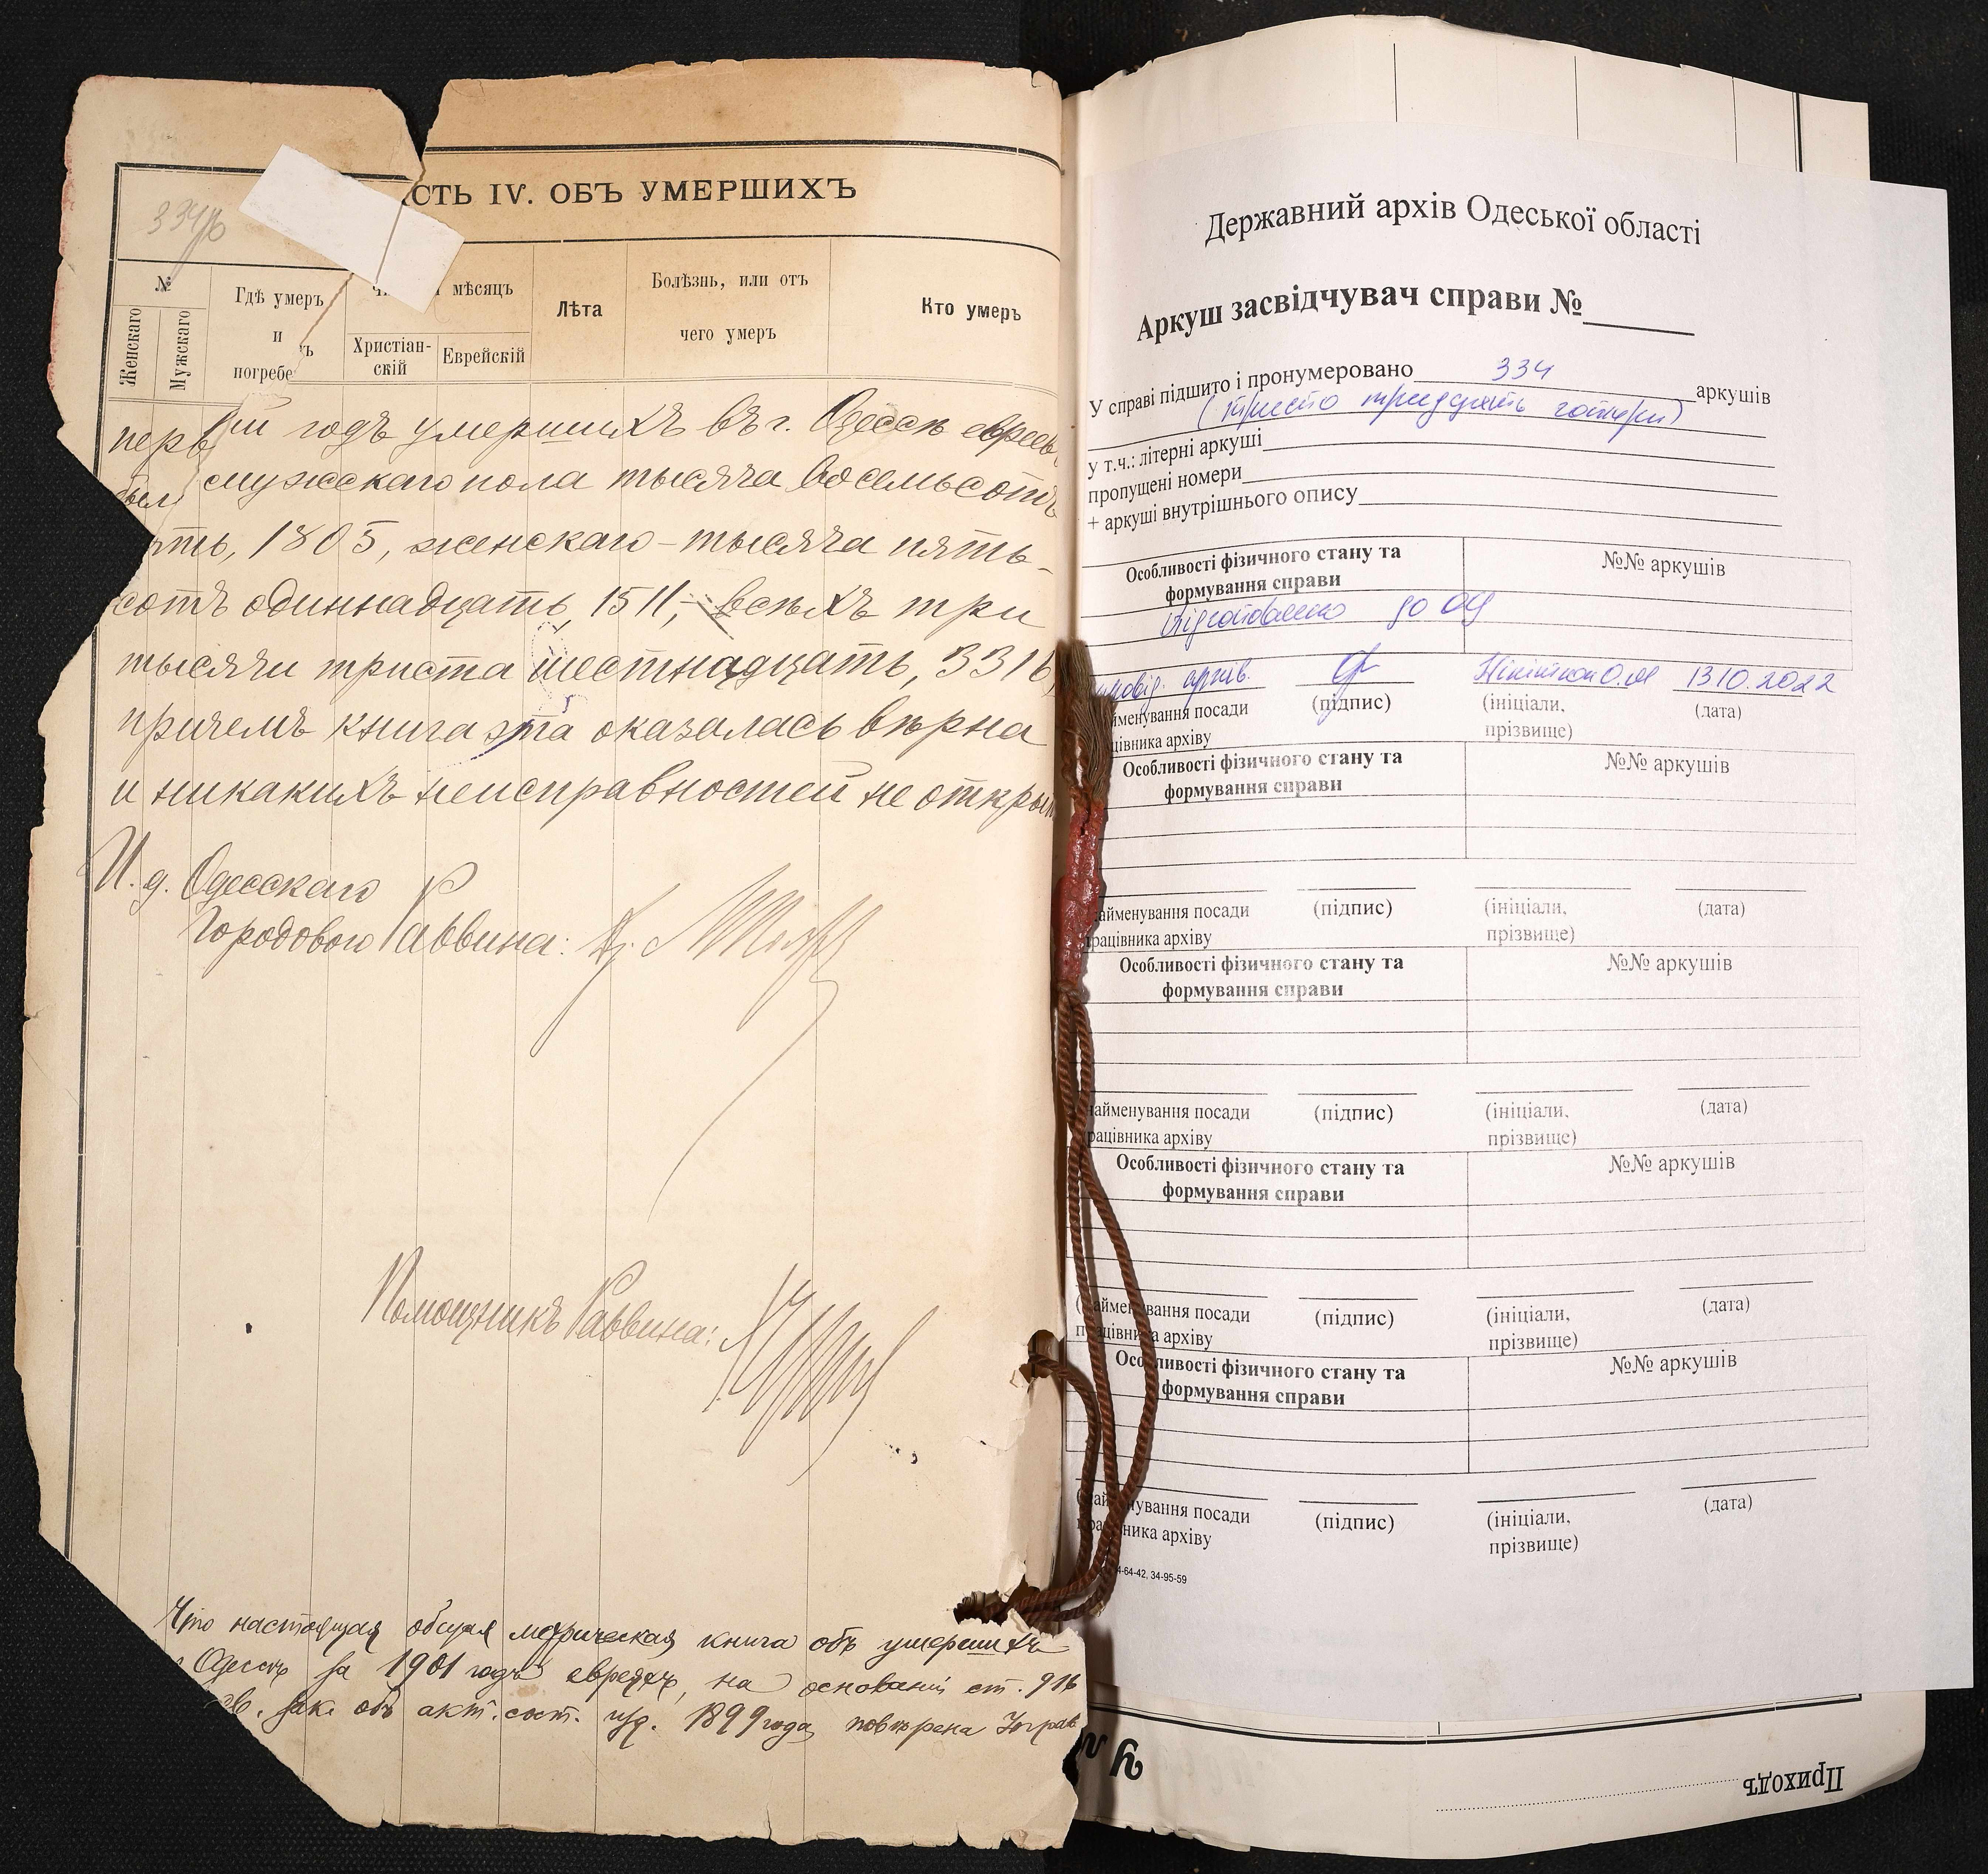 СТЬ IV. ОБЪ УМЕРШИХЪ
334
№
Женскаго
Мужскаго
Гдѣ умеръ
и
погребе
ъ
мѣсяцъ
Христіан-
скій
Еврейскій
Лѣта
Болѣзнь, или отъ
чего умеръ
Кто умеръ
перв ый годъ умершихъ въ г. Одессѣ евреев
был мужскаго пола тысяча восемьсотъ
ять, 1805, женскаго - тысяча пять-
сотъ одиннадцать, 1511, - всѣхъ три
тысячи триста шестнадцать, 3316,
причемъ книга эта оказалась вѣрна
и никакихъ неисправностей не откры
И. д. Одесскаго
Городового Раввина:
Помощникъ Раввина:
Что настоящая общая метрическая книга объ умершихъ
Одессѣ за 1901 годъ евреяхъ, на основаніи ст. 916
св. зак. объ акт. сост. изд. 1899 года, повѣрена Управ
Державний архів Одеської області
Аркуш засвідчувач справи №
У справі підшито і пронумеровано 334 аркушів
(триста тридцять чотири)
у т.ч.: літерні аркуші
пропущені номери
+ аркуші внутрішнього опису
Особливості фізичного стану та
формування справи
№№ аркушів
Підготовлено до ОЦ
архів. Нікіткой О.М 13.10.2022
йменування посади
цівника архіву
(підпис)
(ініціали,
прізвище)
(дата)
Особливості фізичного стану та
формування справи
№№ аркушів
айменування посади
рацівника архіву
(підпис)
(ініціали,
прізвище)
(дата)
Особливості фізичного стану та
формування справи
№№ аркушів
айменування посади
рацівника архіву
(підпис)
(ініціали,
прізвище)
(дата)
Особливості фізичного стану та
формування справи
№№ аркушів
(найменування посади
працівника архіву
(підпис)
(ініціали,
прізвище)
(дата)
Особливості фізичного стану та
формування справи
№№ аркушів
(найменування посади
працівника архіву
(підпис)
(ініціали,
прізвище)
(дата)
4-64-42, 34-95-59
Приходъ